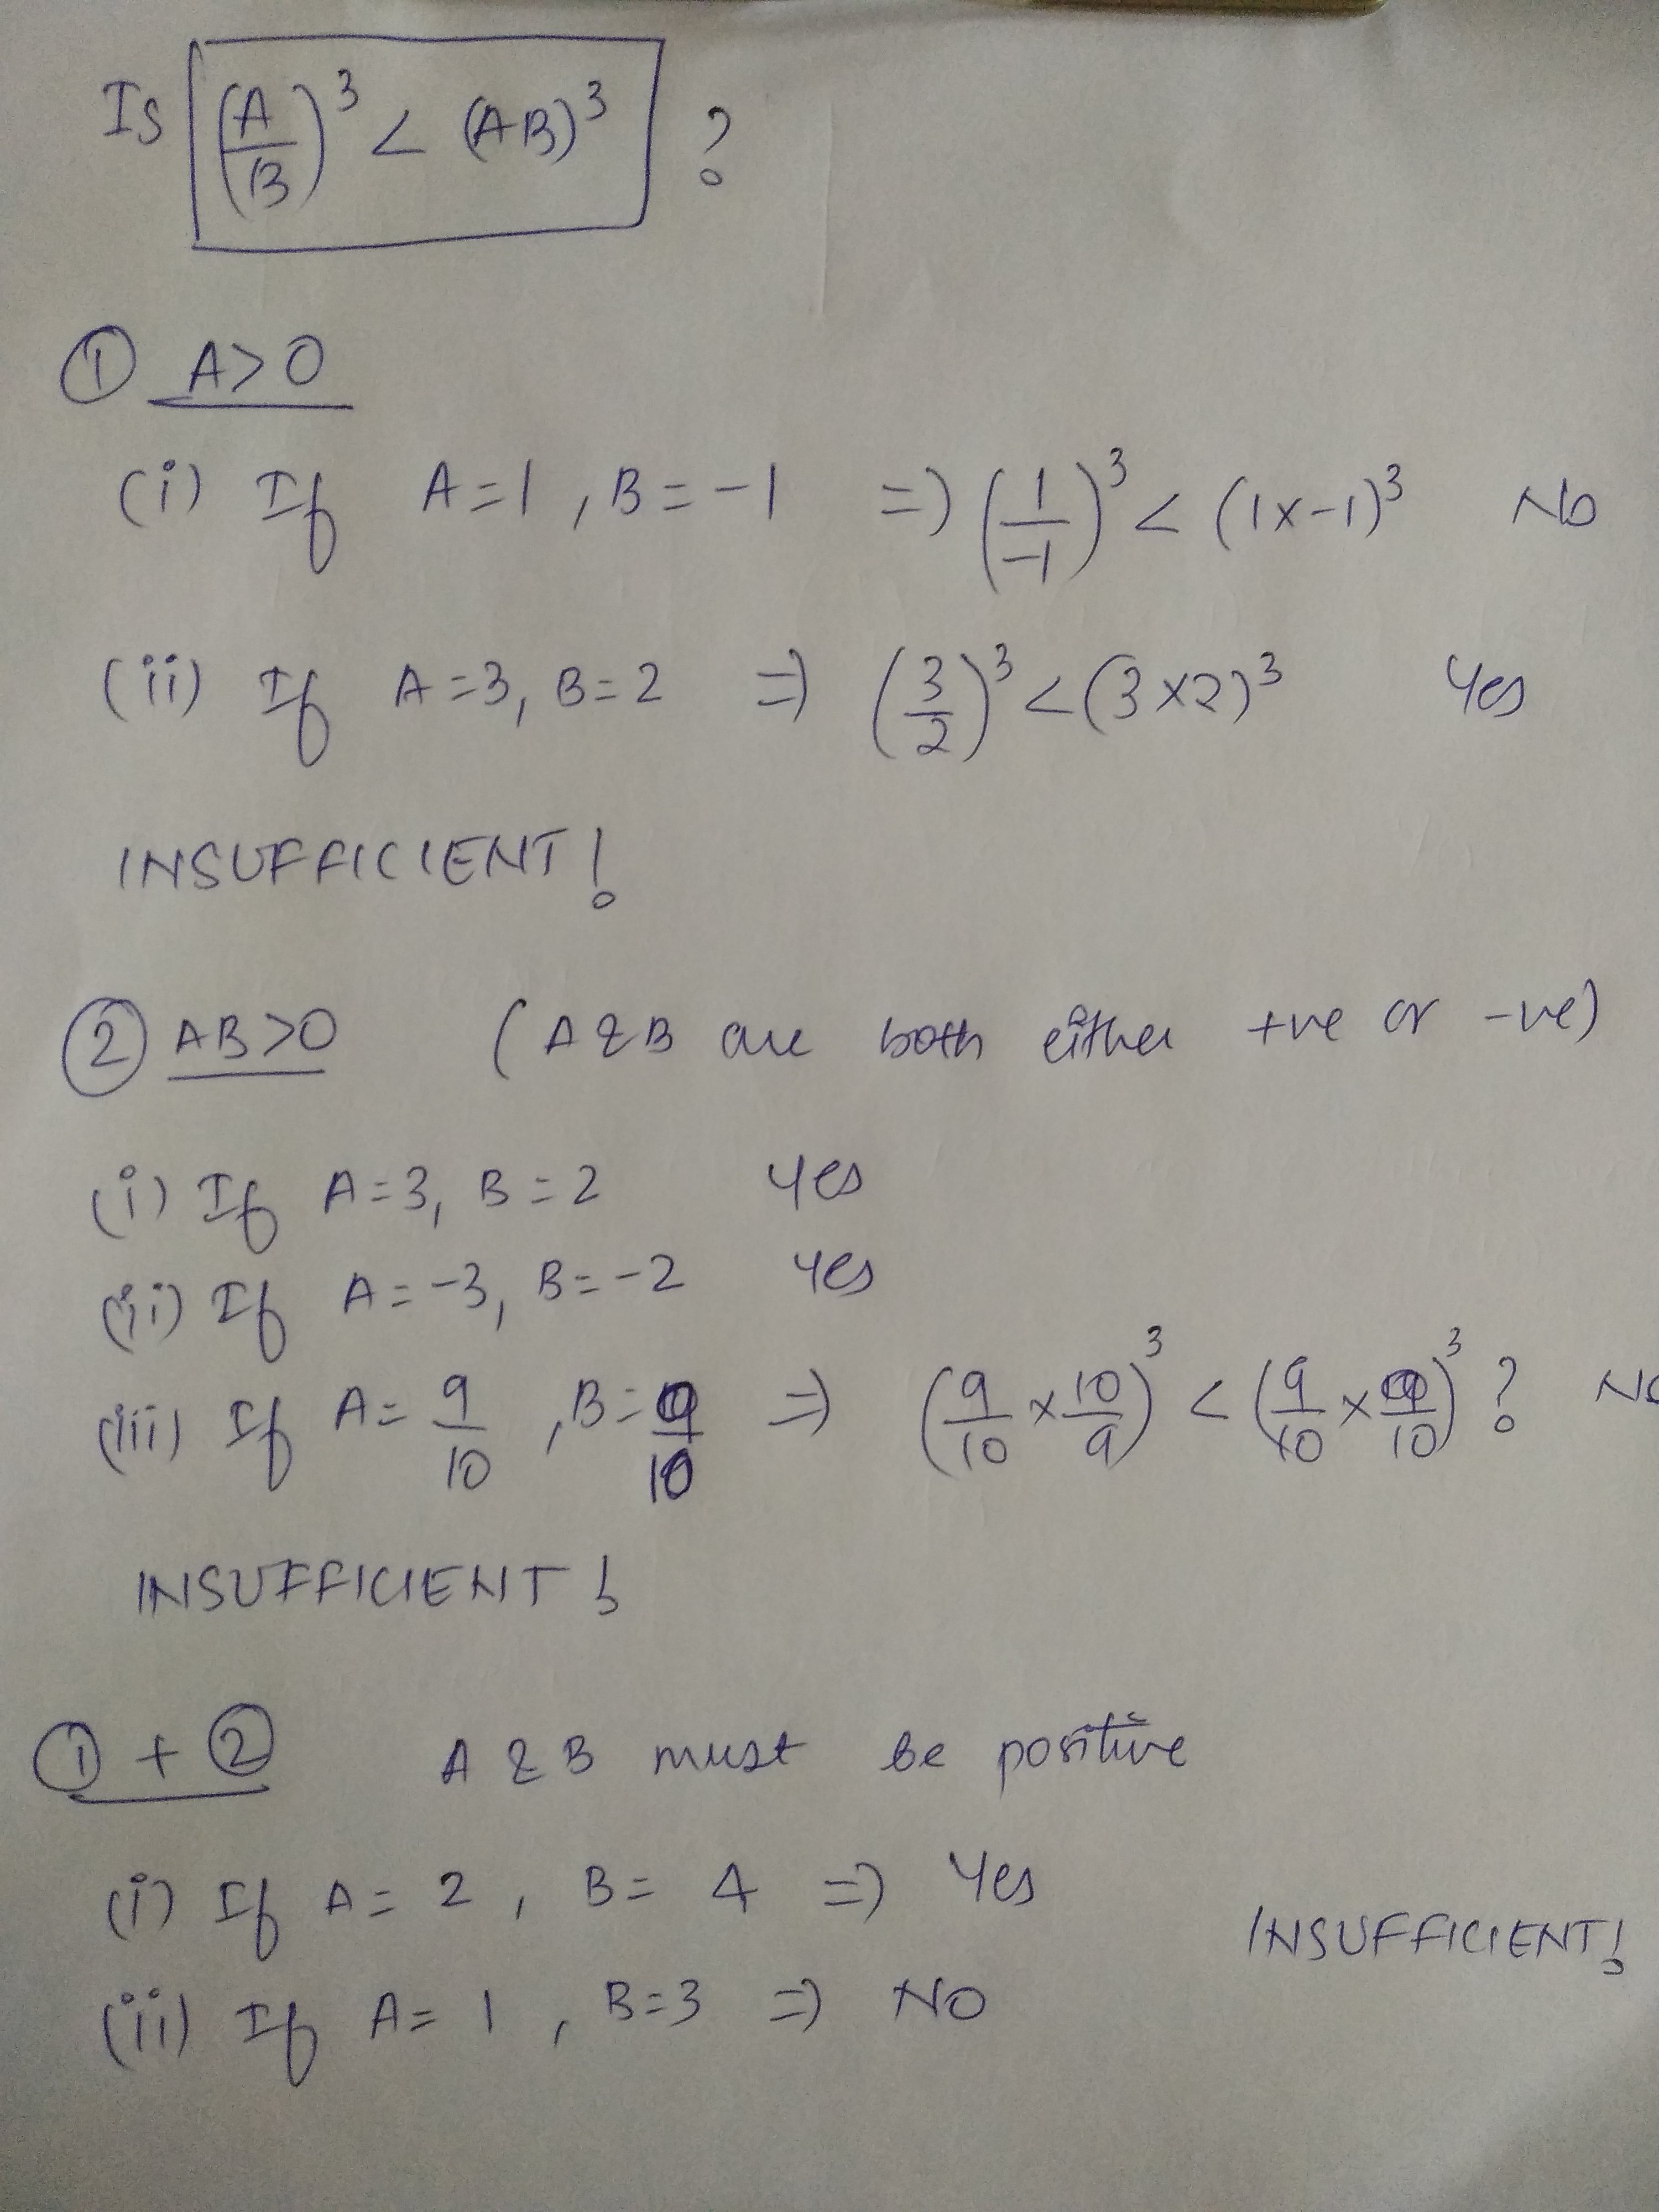 Is (A/B)³ < (AB)³ ?
① A>0
(i) If A=1, B=-1 => (1/-1)³ < (1x-1)³ No
(ii) If A=3, B=2 => (3/2)³ < (3×2)³ Yes
INSUFFICIENT!
② AB>0 (A & B are both either +ve or -ve)
(i) If A=3, B=2 Yes
(ii) If A=-3, B=-2 Yes
(iii) If A= 9/10, B= 9/10 => (9/10 × 10/9)³ < (9/10 × 9/10)³ ? No
INSUFFICIENT!
① + ② A & B must be positive
(i) If A= 2, B= 4 => Yes
INSUFFICIENT!
(ii) If A= 1, B=3 => NO